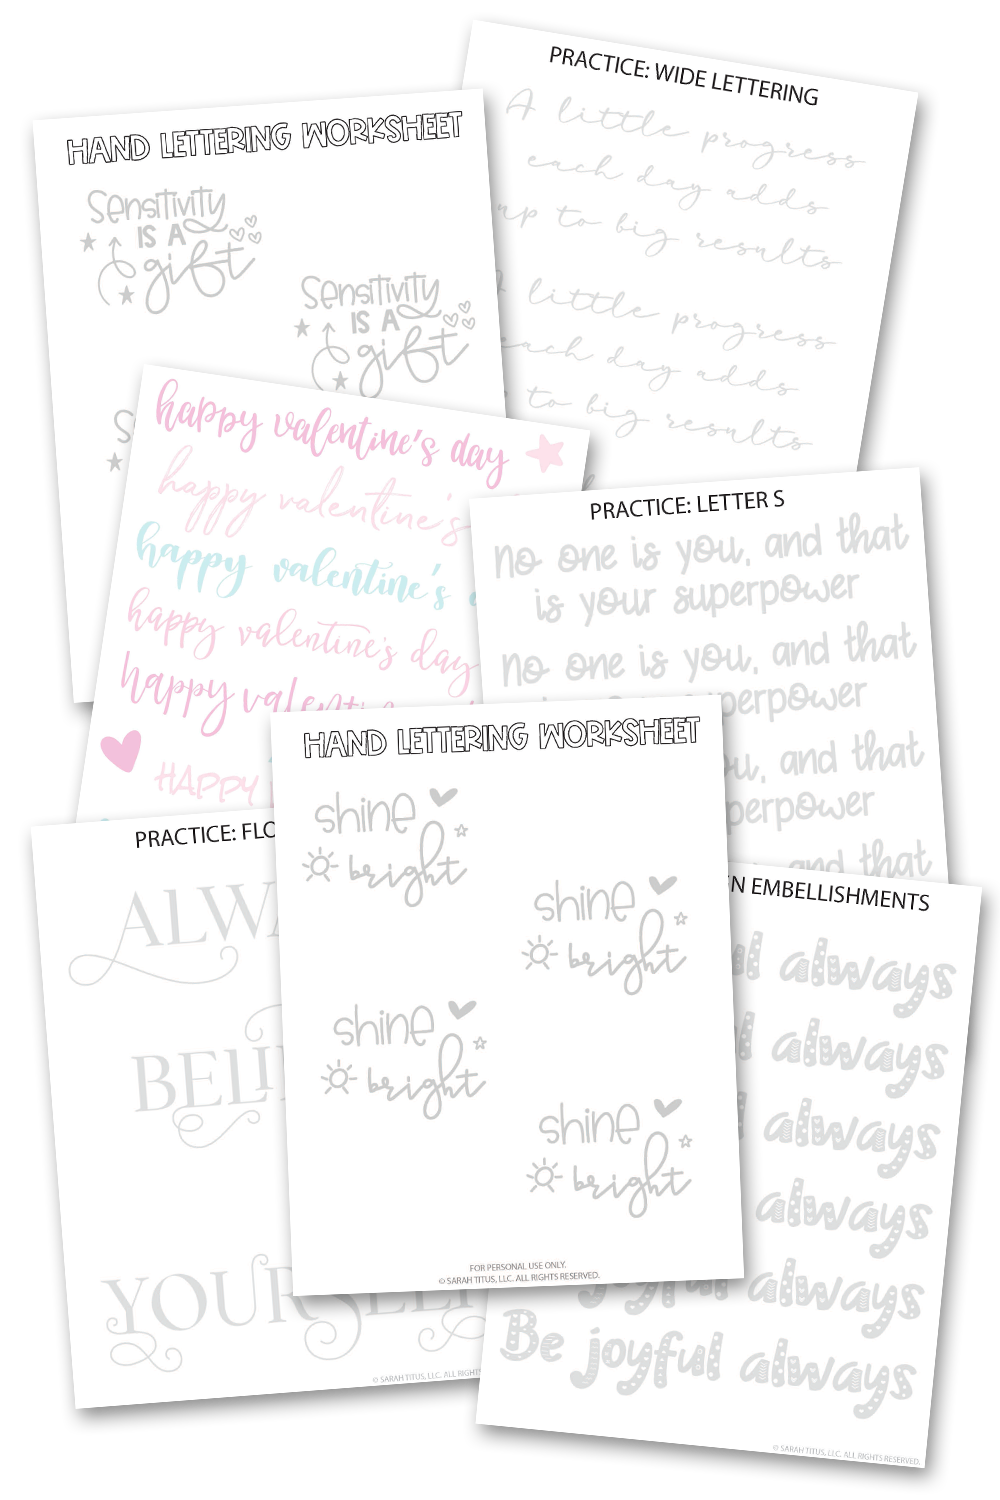 PRACTICE: WIDE LETTERING
A little progress
each day adds
up to big results
little progress
each day adds
to big results
HAND LETTERING WORKSHEET
Sensitivity
IS A
gift
Sensitivity
IS A
gift
S
happy valentine's day
happy valentine's
happy valentine's
happy valentine's day
happy valent
HAPPY
PRACTICE: LETTER S
no one is you, and that
is your superpower
no one is you, and that
superpower
you, and that
superpower
and that
HAND LETTERING WORKSHEET
shine
bright
shine
bright
shine
bright
shine
bright
FOR PERSONAL USE ONLY.
© SARAH TITUS, LLC. ALL RIGHTS RESERVED.
PRACTICE: FLO
ALWA
BELI
YOURSELF
© SARAH TITUS, LLC. ALL RIGHTS
N EMBELLISHMENTS
ul always
l always
always
always
joyful always
Be joyful always
© SARAH TITUS, LLC. ALL RIGHTS RESERVED.